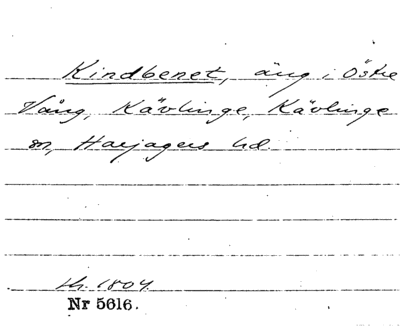 Kindbenet, äng i Östre
Vång, Kävlinge, Kävlinge
sn, Harjagers hd.
sk. 1804
Nr 5616.